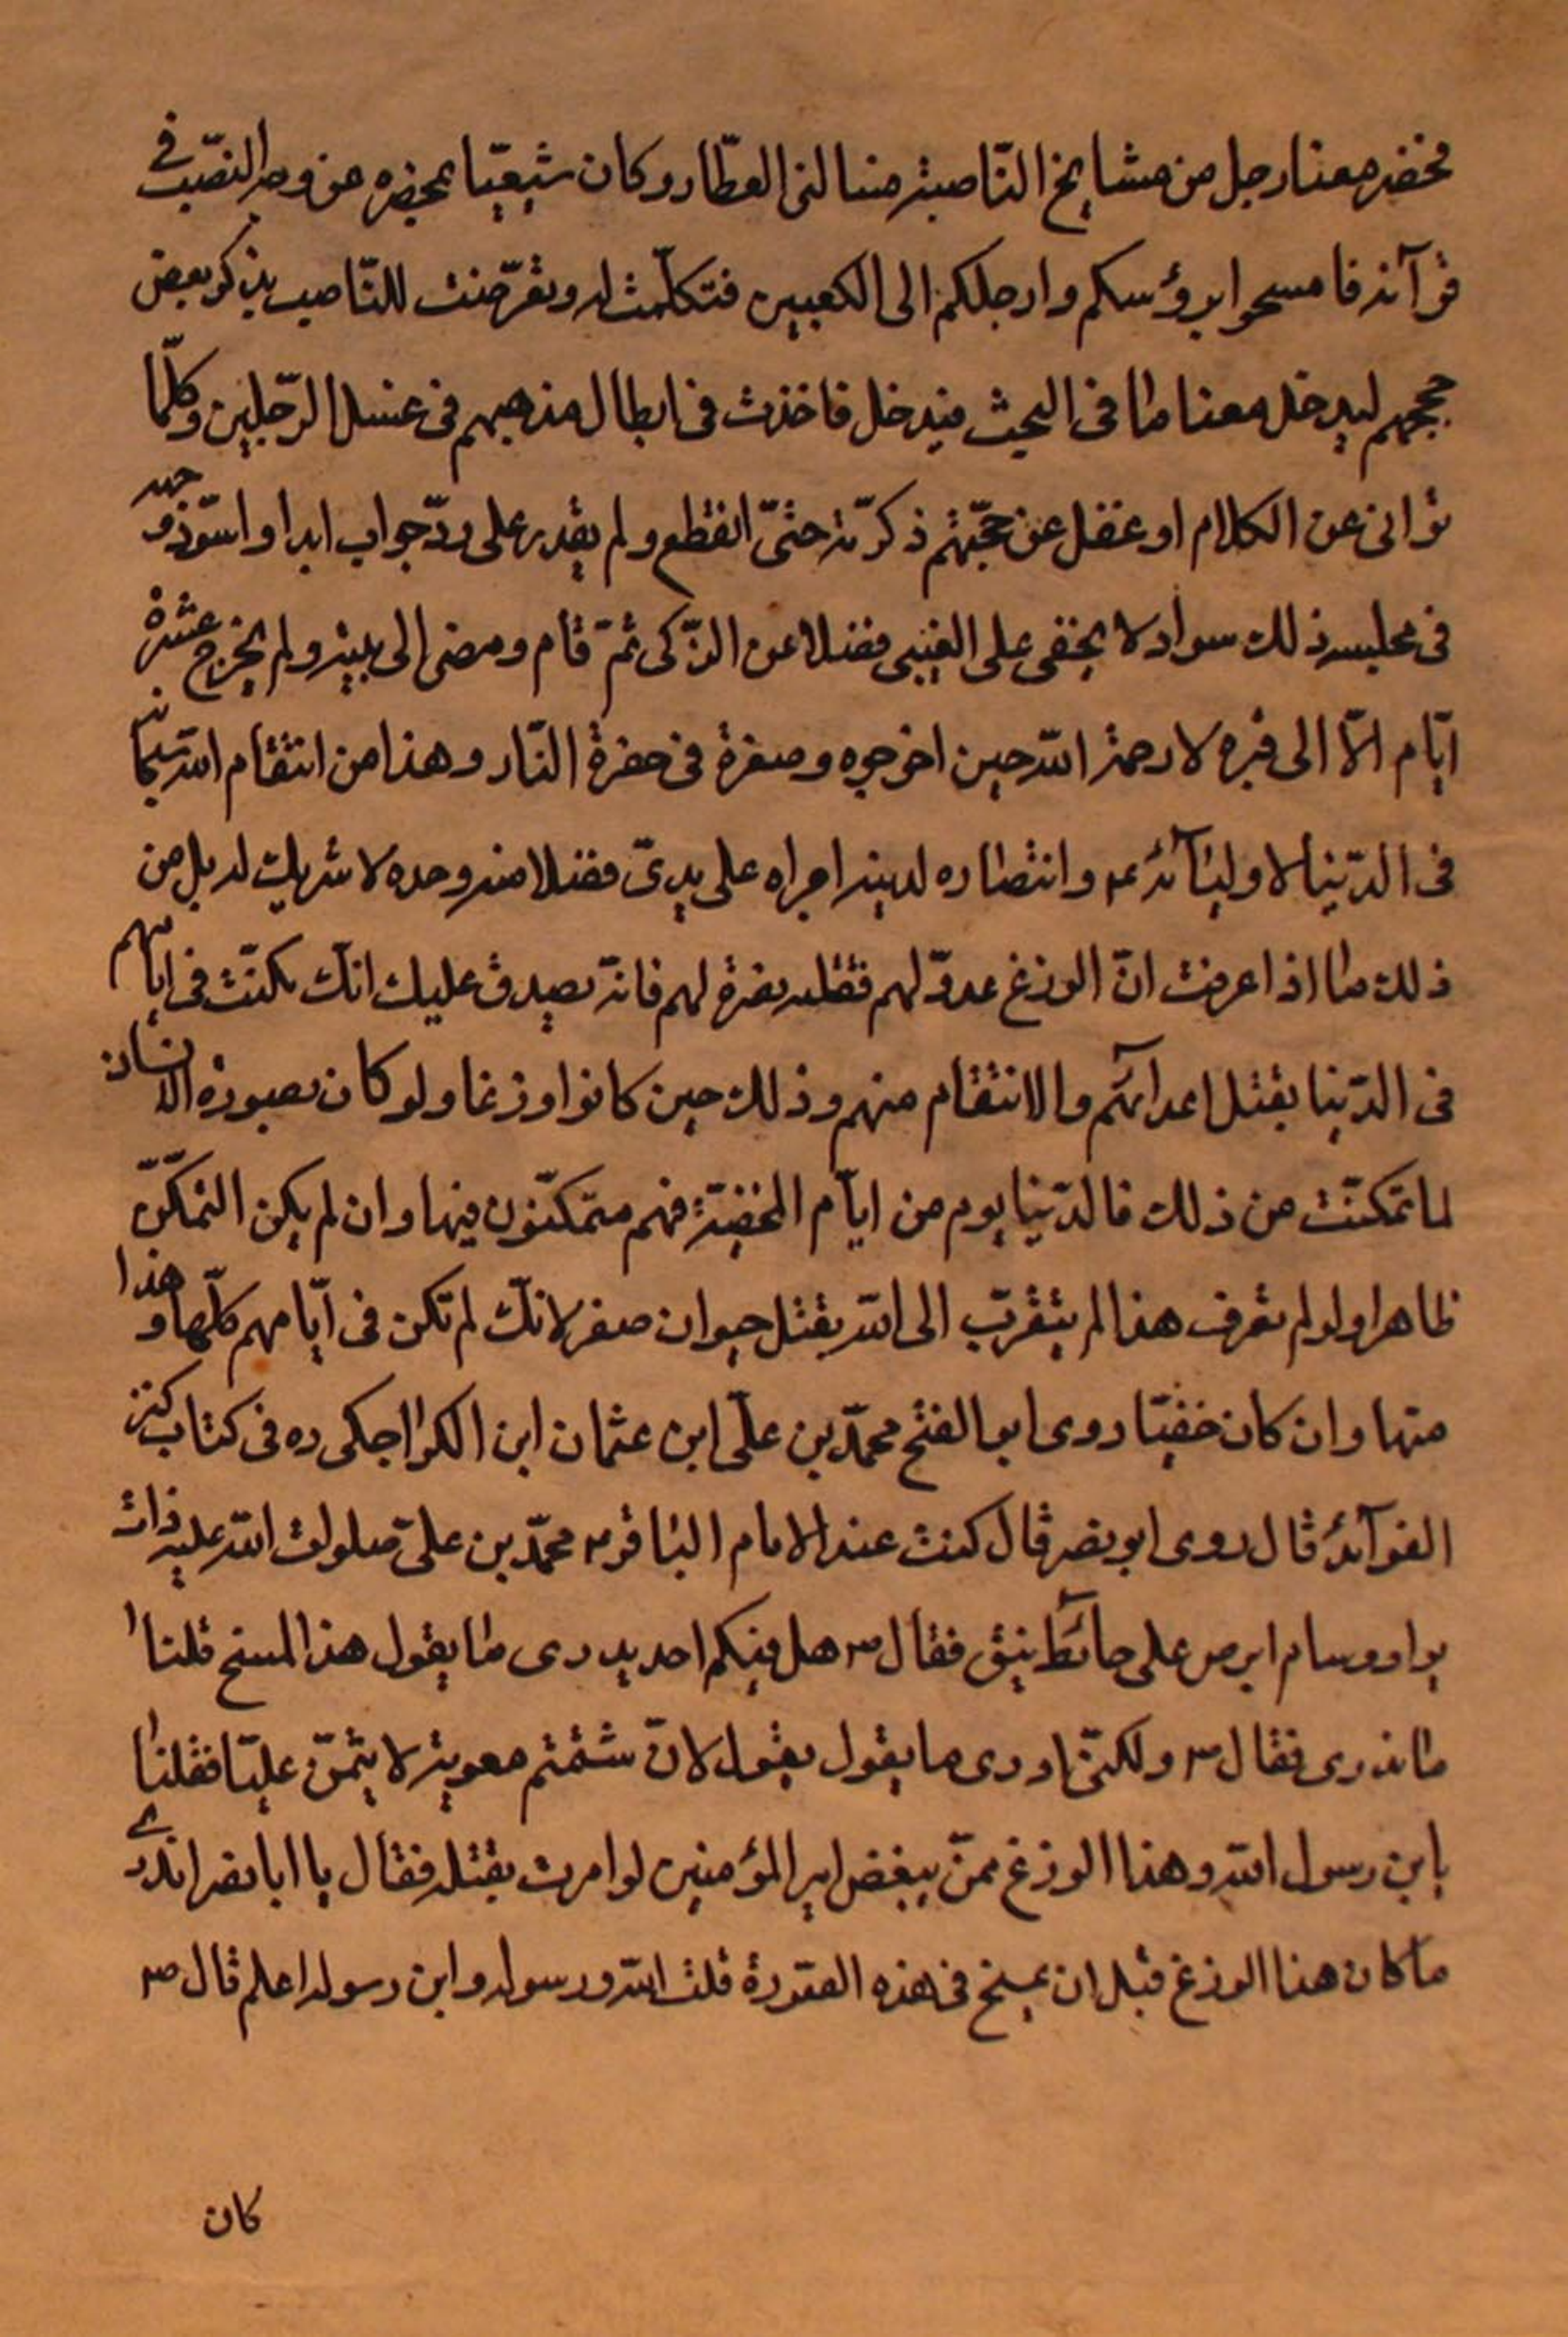 فحضر معنا رجل من مشايخ النّاصبة فسالنى العطّار وكان شيعيّا بمحضره عن وجه النصب فى
قرآئه فامسحوا برؤسكم وارجلكم الى الكعبين فتكلّمت له وتعرّضت للنّاصب بذكر بعض
حججهم ليدخل معنا فى البحث فيدخل فاخذت فى ابطال مذهبهم فى غسل الرّجلين وكلّما
توانى عن الكلام او غفل عن حجّتهم ذكرّته حتىّ انقطع ولم يقدر على ردّ جواب ابدا واسّود وجهه
فى مجلسه ذلك سواد لا يخفى على الغبىى فضلا عن الذّكى ثمّ قام ومضى الى بيته ولم يخرج عشرة
ايّام الّا الى قبره لا رحمة الله حين اخرجوه وصغرة فى حفرة النّار وهذا من انتقام الله سبحانه
فى الدّنيا لاوليٰآئه ع وانتصاره لدينه اجراه على يدىّ فضلا منه وحده لا شريك له بل من
ذلك ما اذا عرفت انّ الوزغ عدوّ لهم فقتله نصرة لهم فانّه يصدق عليك انّك تمكنّت فى ايّامهم
فى الدّنيا بقتل اعدآئهم والانتقام منهم وذلك حين كانوا وزغا ولو كان بصورة الانسان
لما تمكنّت من ذلك فالدّنيا يوم من ايّام الخفيّة فهم متمكنّون فيها وان لم يكن التمكّن
ظاهرا ولو لم تعرف هذا لم يتقرّب الى الله بقتل حيوان صغر لانّك لم تكن فى ايّامهم كلّها وهذا
منها وان كان خفيّا روى ابو الفتح محمّد بن علّى ابن عثمان ابن الكراجكى ره فى كتاب كنز
الفوآئد قال روى ابو بصر قال كنت عند الامام البٰاقر ع محمّد بن علىّ صلوات الله عليه ذات
يوم وسام ابرص على حآئط ينق فقال ع هل فيكم احد يدرى ما يقول هذا المسخ قلنا
ما ندرى فقال ع ولكنّى ادرى ما يقول يقول لانّ شتمتم معوية لا يتمنّ عليّا فقلنٰا
يابن رسول الله وهذا الوزغ ممنّ يبغض امير المؤمنين لو امرت بقتله فقال يا ابا بصر اتدرى
ما كان هذا الوزغ قبل ان يمسخ فى هذه الصّورة قلت الله ورسوله وابن رسوله اعلم قال ع
كان